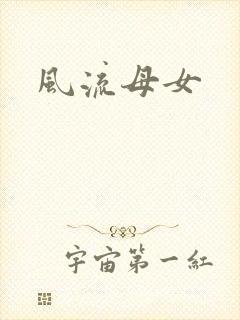 風流母女
宇宙第一紅